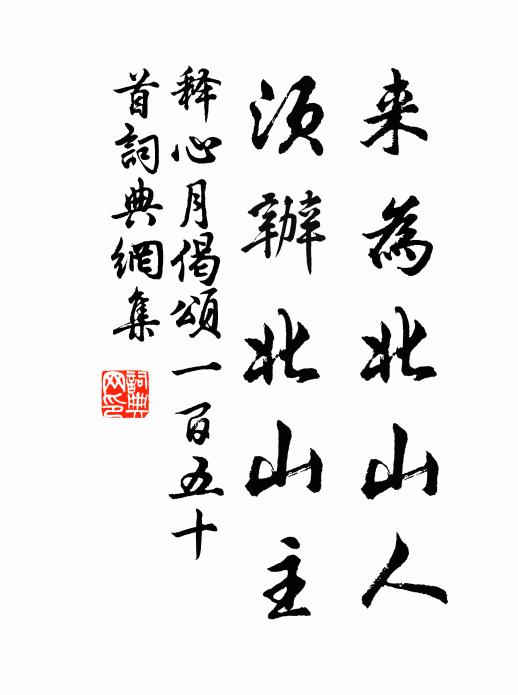 来為北山人
須辦北山主
释心月偈頌一百五十
首詞典網集
詞典网印